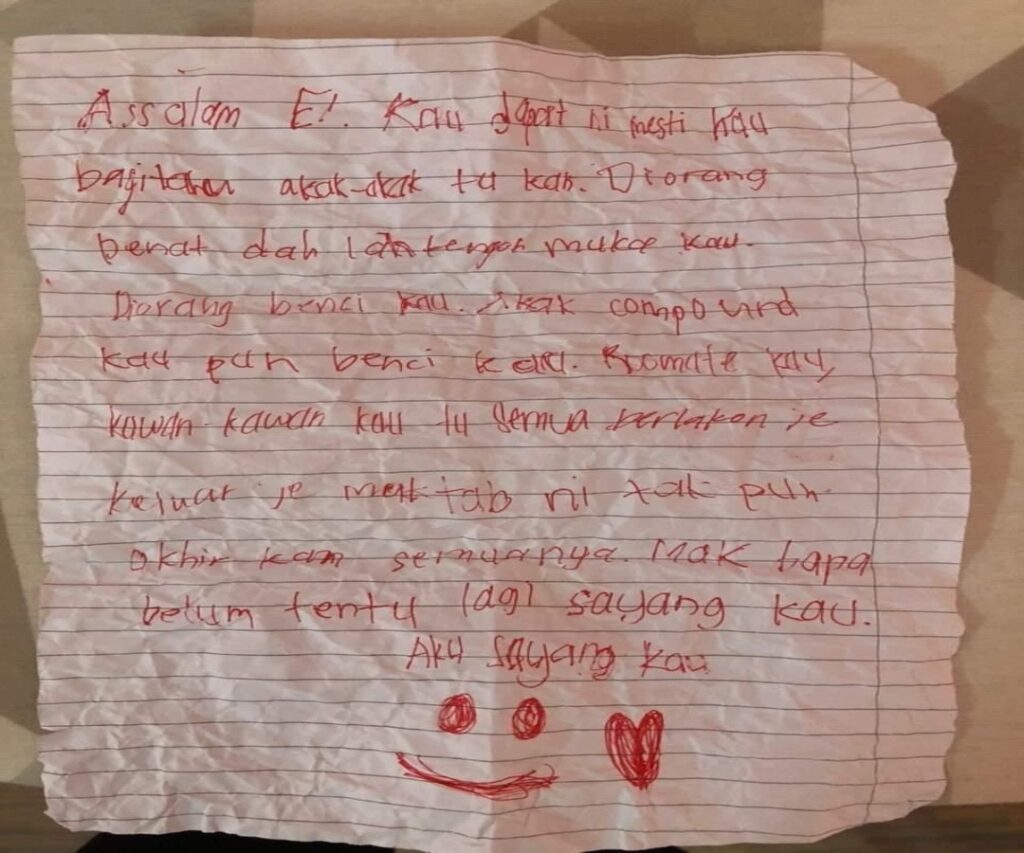 Assalam E!. Kau dapat ni mesti kau
bagitahu akak-akak tu kan. Diorang
penat dah tengok muka kau.
Diorang benci kau. Akak compound
kau pun benci kau. Roomate kau,
kawan-kawan kau tu semua berlakon je
Keluar je maktab ni tak pun
akhir kan semuanya. Mak bapa
belum tentu lagi sayang kau.
Aku sayang kau